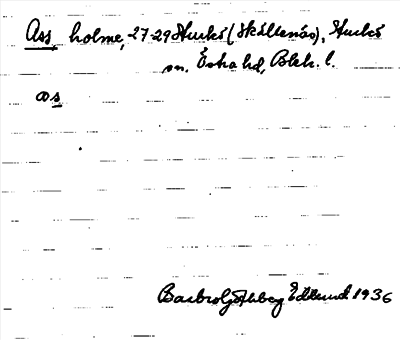 Ass holme, 27-29 Sturkö (Skällenäs), Sturkö
sn. Östra hd, Blek. l.
as
Barbro Götberg Edlund 1936